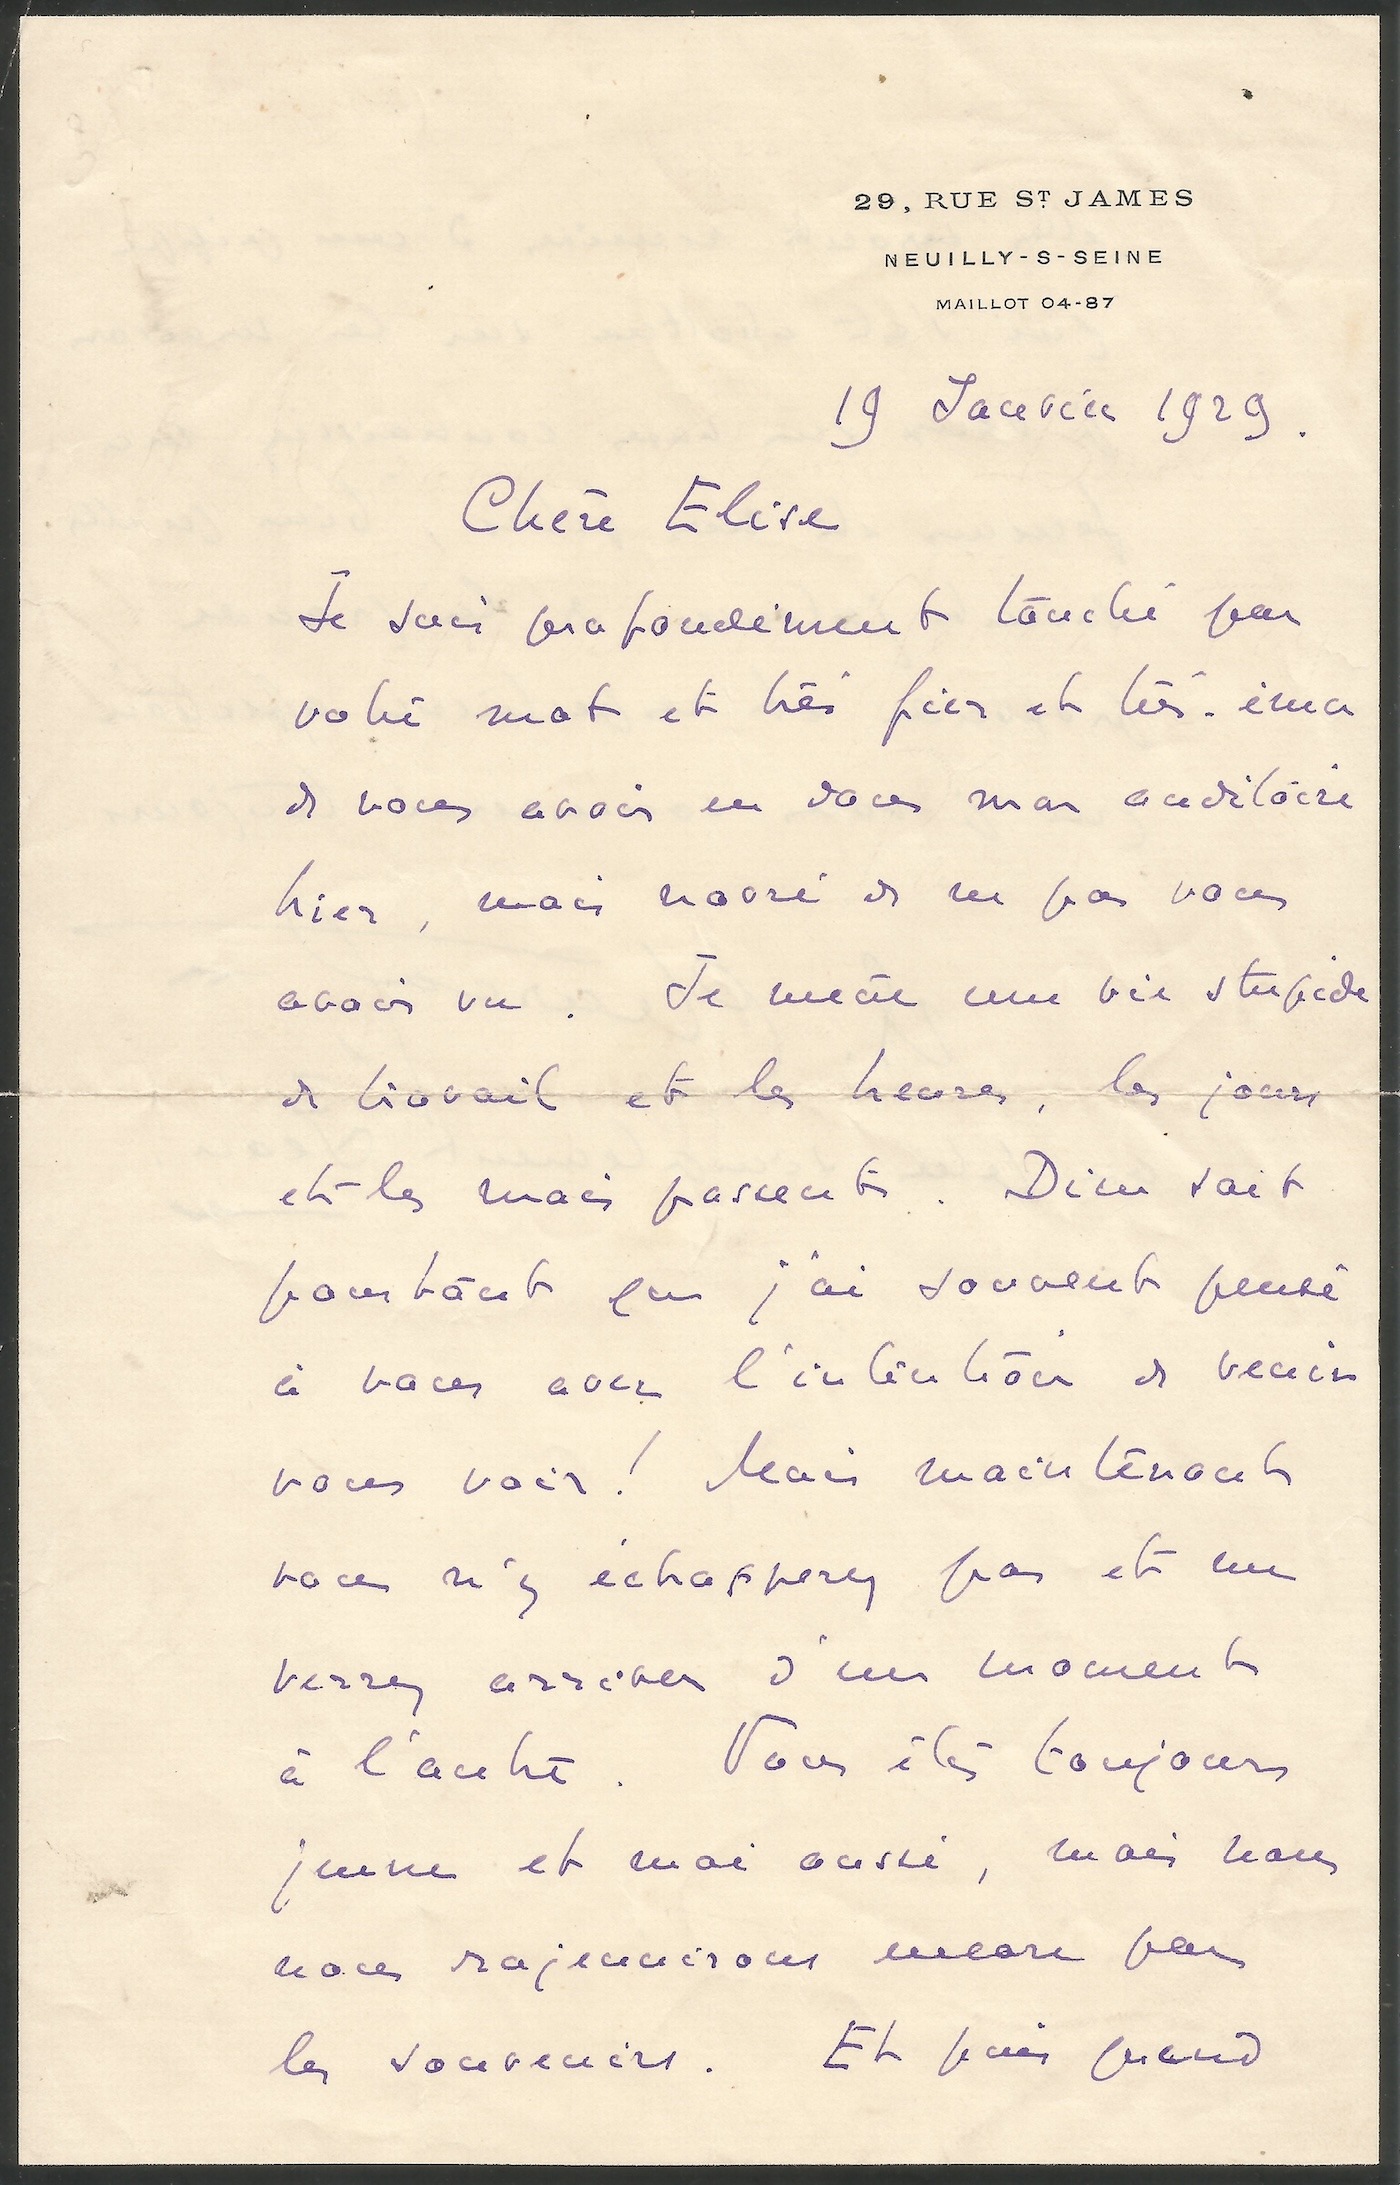 29, RUE ST JAMES
NEUILLY-S-SEINE
MAILLOT 04-87
19 Janvier 1929.
Chère Elise
Je suis profondément touché par
votre mot et très fier et très ému
de vous avoir eu dans mon auditoire
hier, mais navré de ne pas vous
avoir vu. Je mène une vie stupide
de travail et les heures, les jours
et les mois passent. Dieu sait
pourtant que j'ai souvent pensé
à vous avec l'intention de venir
vous voir! Mais maintenant
vous n'y échapperez pas et me
verrez arriver d'un moment
à l'autre. Vous êtes toujours
jeune et moi aussi, mais nous
nous rajeunirons encore par
les souvenirs. Et puis quand